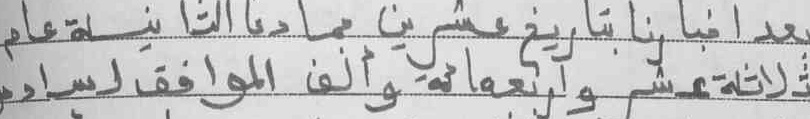 بعد اخبارنا بتاريخ عشرين جمادى الثانية عام
ثلاثة عشر وأربعمائة وألف الموافق لسادس